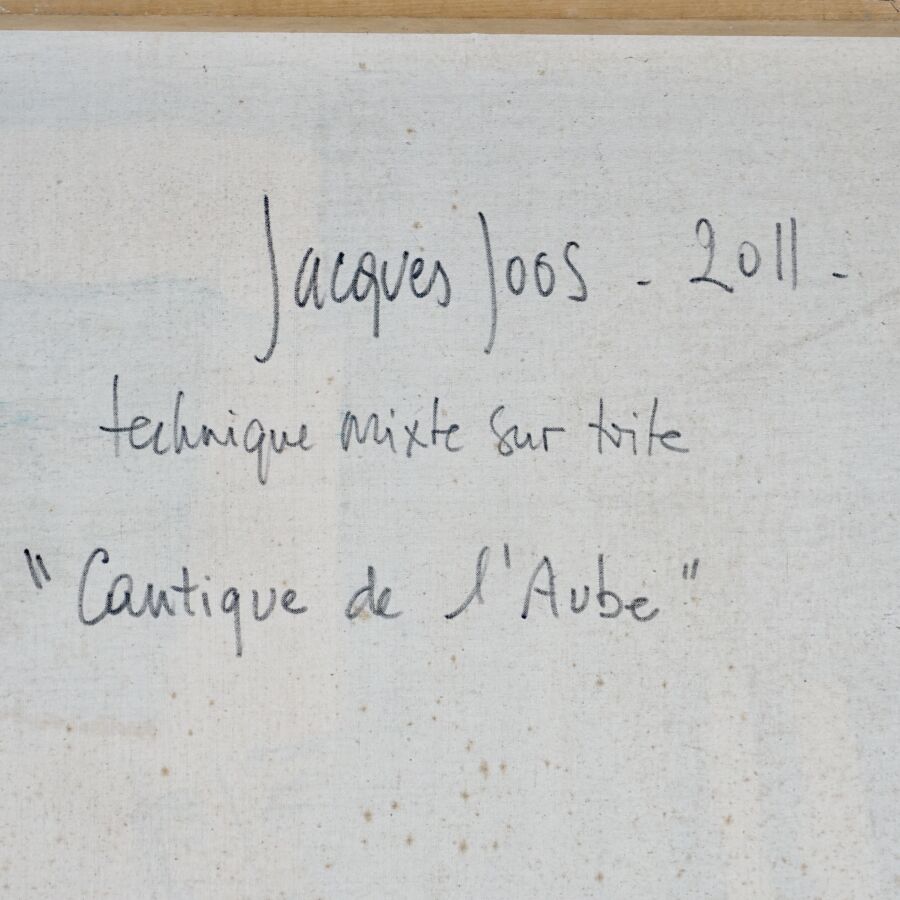 Jacques Joos - 2011 -
technique mixte sur toile
"Cantique de l'Aube"